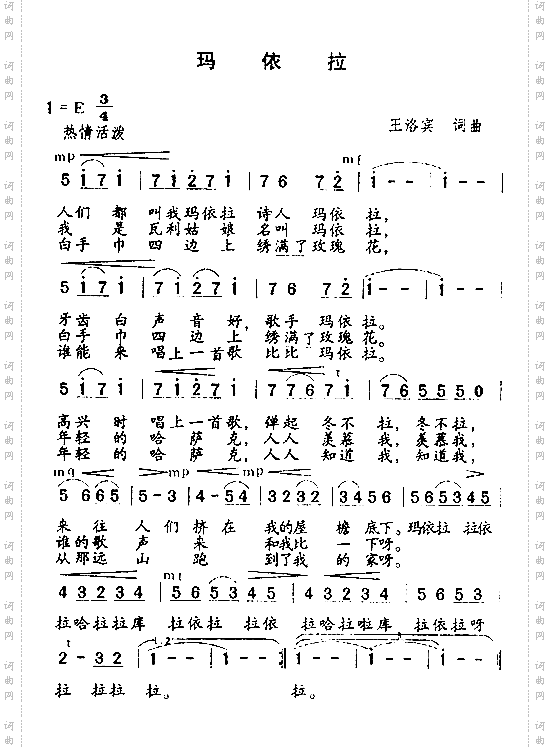 玛 依 拉
1=E 3/4
热情活泼
王洛宾 词曲
mp mf
5 i7i | 7i27i | 76 72 | i-- | i-- |
人们 都 叫我玛依拉 诗人 玛依 拉,
我 是 瓦利姑娘 名叫 玛依 拉,
白手 巾 四边上 绣满了玫瑰 花,
5 i7i | 7i27i | 76 72 | i-- | i-- |
牙齿 白 声音好, 歌手 玛依 拉。
白手 巾 四边上 绣满了玫瑰 花。
谁能 来 唱上一首歌 比比 玛依 拉。
5 i7i | 7i27i | 77671 | 765550
高兴 时 唱上一首歌, 弹起 冬不 拉, 冬不拉,
年轻 的 哈萨克, 人人 羡慕 我, 羡慕我,
年轻 的 哈萨克, 人人 知道 我, 知道我,
mp mp
5 665 | 5-3 | 4-54 | 3 2346 | 3456 | 565345
来 往 人们 挤在 我的屋 檐 底下。玛依拉 拉依
谁的歌 声 来 和我比 一 下呀。
从那远 山 跑 到了我 的 家呀。
mf
43234 | 565345 | 43234 | 5653
拉哈拉拉库 拉依拉 拉依 拉哈拉啦库 拉依拉呀
1.2. 3
2-32 | 1-- | 1-- | 1-- | 1--
拉 拉拉 拉。 拉。
词曲网
词曲网
词曲网
词曲网
词曲网
词曲网
词曲网
词曲网
词曲网
词曲网
词曲网
词曲网